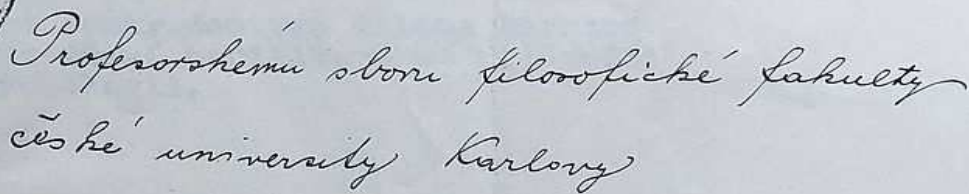 Profesorskému sboru filosofické fakulty
české university Karlovy